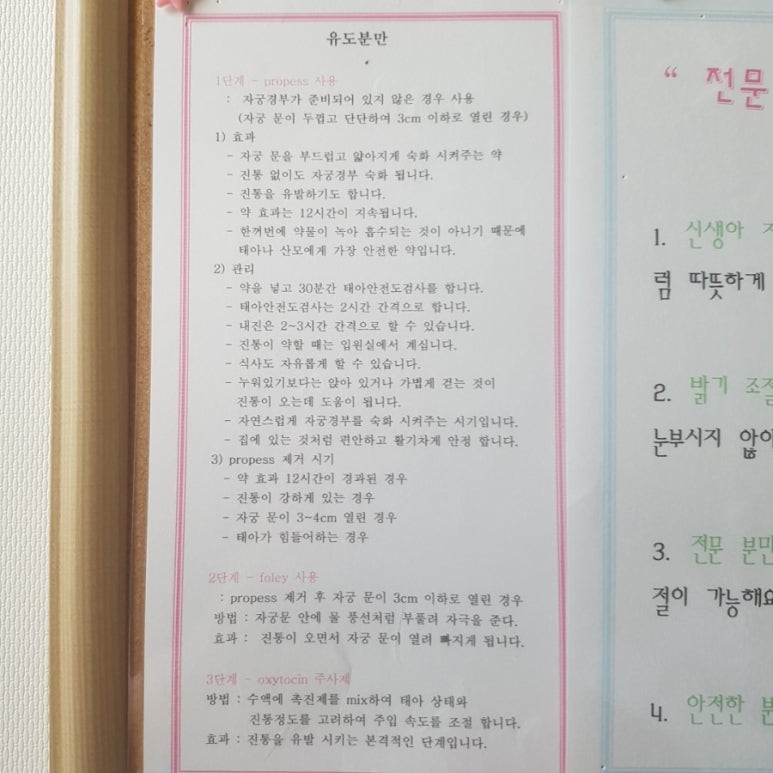 유도분만
1단계 - propess 사용
: 자궁경부가 준비되어 있지 않은 경우 사용
(자궁 문이 두껍고 단단하여 3cm 이하로 열린 경우)
1) 효과
- 자궁 문을 부드럽고 얇아지게 숙화 시켜주는 약
- 진통 없이도 자궁경부 숙화 됩니다.
- 진통을 유발하기도 합니다.
- 약 효과는 12시간이 지속됩니다.
- 한꺼번에 약물이 녹아 흡수되는 것이 아니기 때문에
태아나 산모에게 가장 안전한 약입니다.
2) 관리
- 약을 넣고 30분간 태아안전도검사를 합니다.
- 태아안전도검사는 2시간 간격으로 합니다.
- 내진은 2~3시간 간격으로 할 수 있습니다.
- 진통이 약할 때는 입원실에서 계십니다.
- 식사도 자유롭게 할 수 있습니다.
- 누워있기보다는 앉아 있거나 가볍게 걷는 것이
진통이 오는데 도움이 됩니다.
- 자연스럽게 자궁경부를 숙화 시켜주는 시기입니다.
- 집에 있는 것처럼 편안하고 활기차게 안정 합니다.
3) propess 제거 시기
- 약 효과 12시간이 경과된 경우
- 진통이 강하게 있는 경우
- 자궁 문이 3~4cm 열린 경우
- 태아가 힘들어하는 경우
2단계 - foley 사용
: propess 제거 후 자궁 문이 3cm 이하로 열린 경우
방법 : 자궁문 안에 물 풍선처럼 부풀려 자극을 준다.
효과 : 진통이 오면서 자궁 문이 열려 빠지게 됩니다.
3단계 - oxytocin 주사제
방법 : 수액에 촉진제를 mix하여 태아 상태와
진통정도를 고려하여 주입 속도를 조절 합니다.
효과 : 진통을 유발 시키는 본격적인 단계입니다.
“ 전문
1. 신생아
럼 따뜻하게
2. 밝기 조절
눈부시지 않아
3. 전문 분만
절이 가능해요
4. 안전한 분